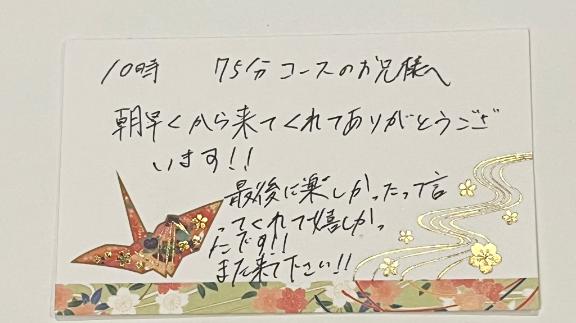 10時 75分コースのお兄様へ
朝早くから来てくれてありがとうござ
います!!
最後に楽しかったって言
ってくれて嬉しかっ
たです!!
また来て下さい!!